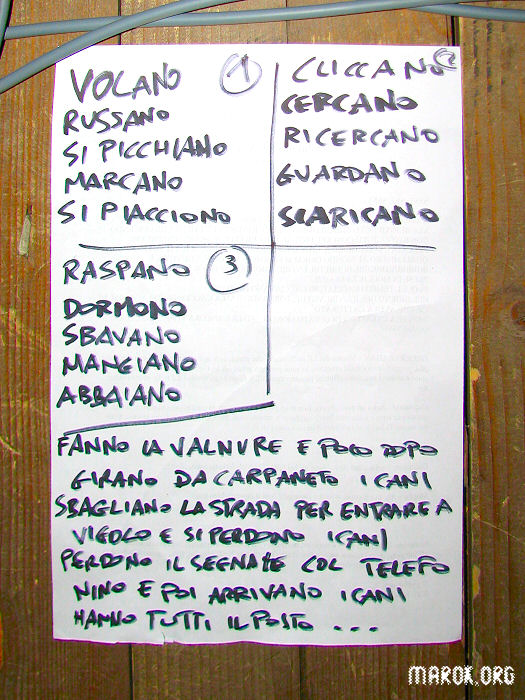 VOLANO 1
RUSSANO
SI PICCHIANO
MARCANO
SI PIACCIONO
CLICCANO 2
CERCANO
RICERCANO
GUARDANO
SCARICANO
RASPANO 3
DORMONO
SBAVANO
MANGIANO
ABBAIANO
FANNO LA VALNURE E POCO DOPO
GIRANO DA CARPANETO I CANI
SBAGLIANO LA STRADA PER ENTRARE A
VIGOLO E SI PERDONO I CANI
PERDONO IL SEGNALE COL TELEFO
NINO E POI ARRIVANO I CANI
HANNO TUTTI IL POSTO ...
MAROK.ORG